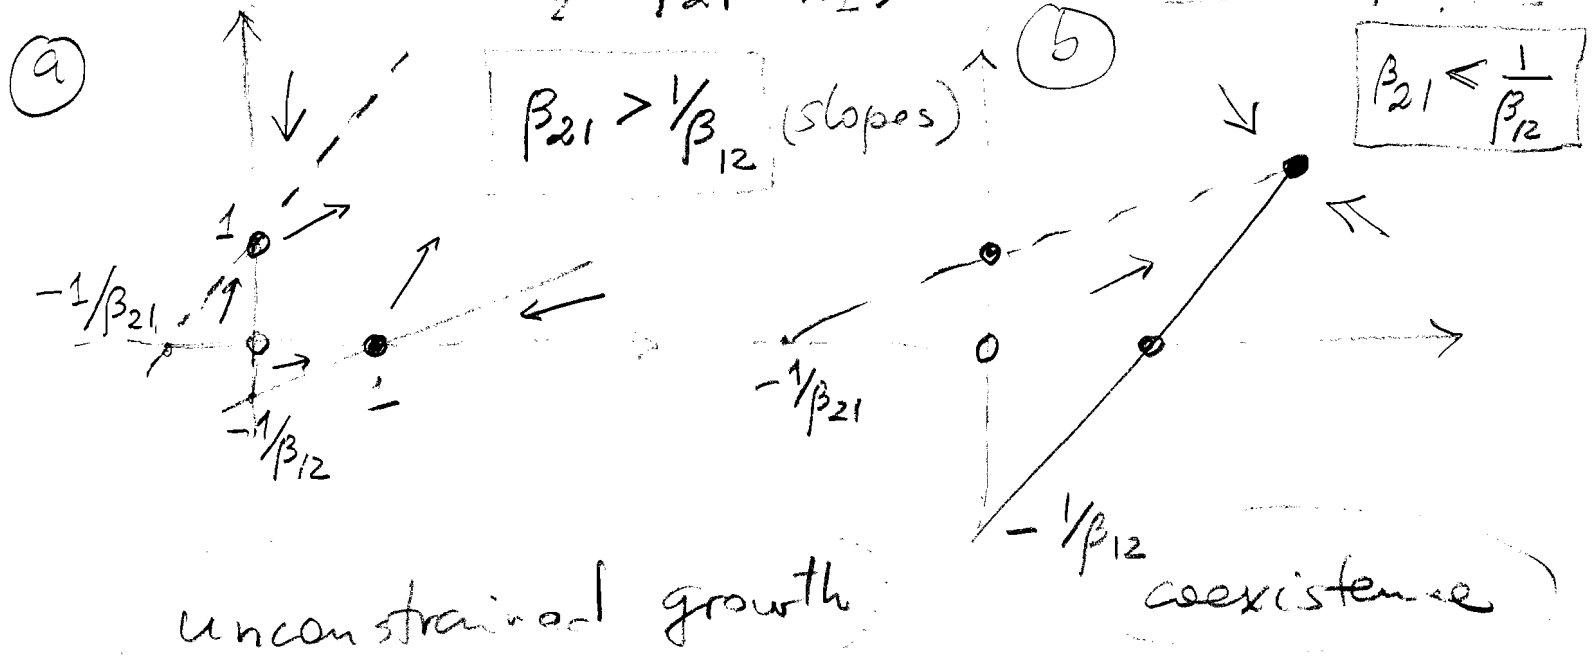 a
β21 > 1/β12 (slopes)
1
-1/β21
1
-1/β12
unconstrained growth
b
β21 < 1/β12
-1/β21
-1/β12
coexistence